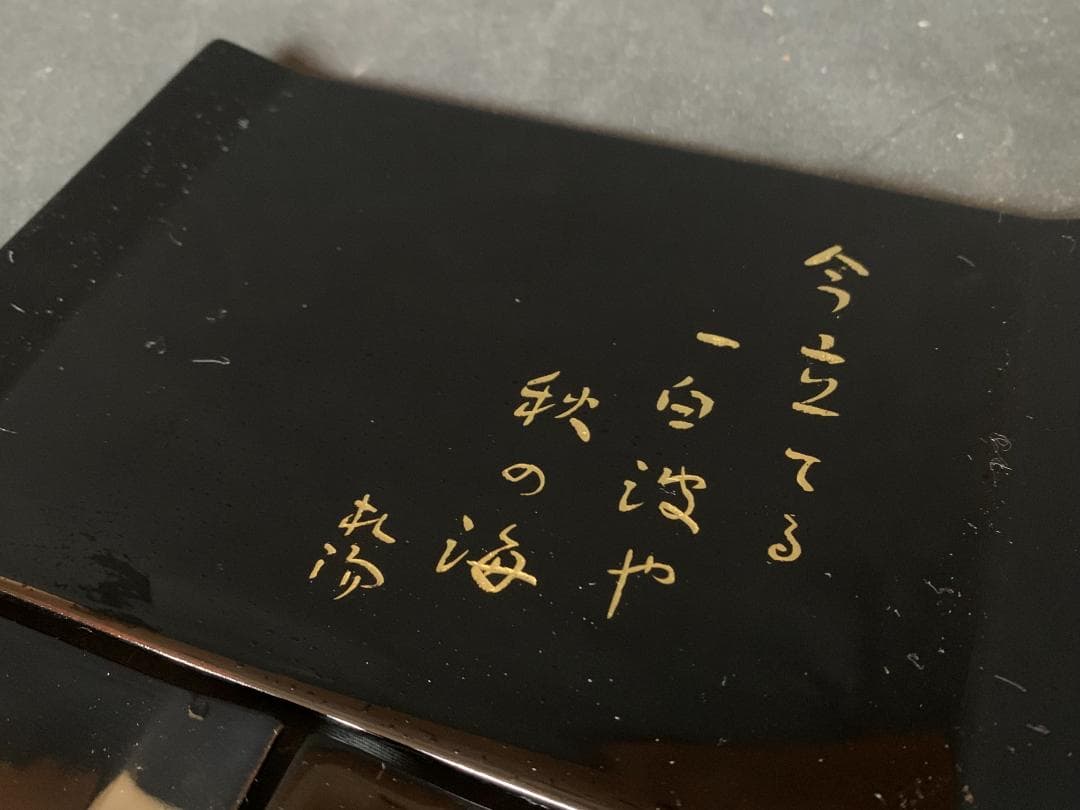 今立てる
一白波や
秋の海